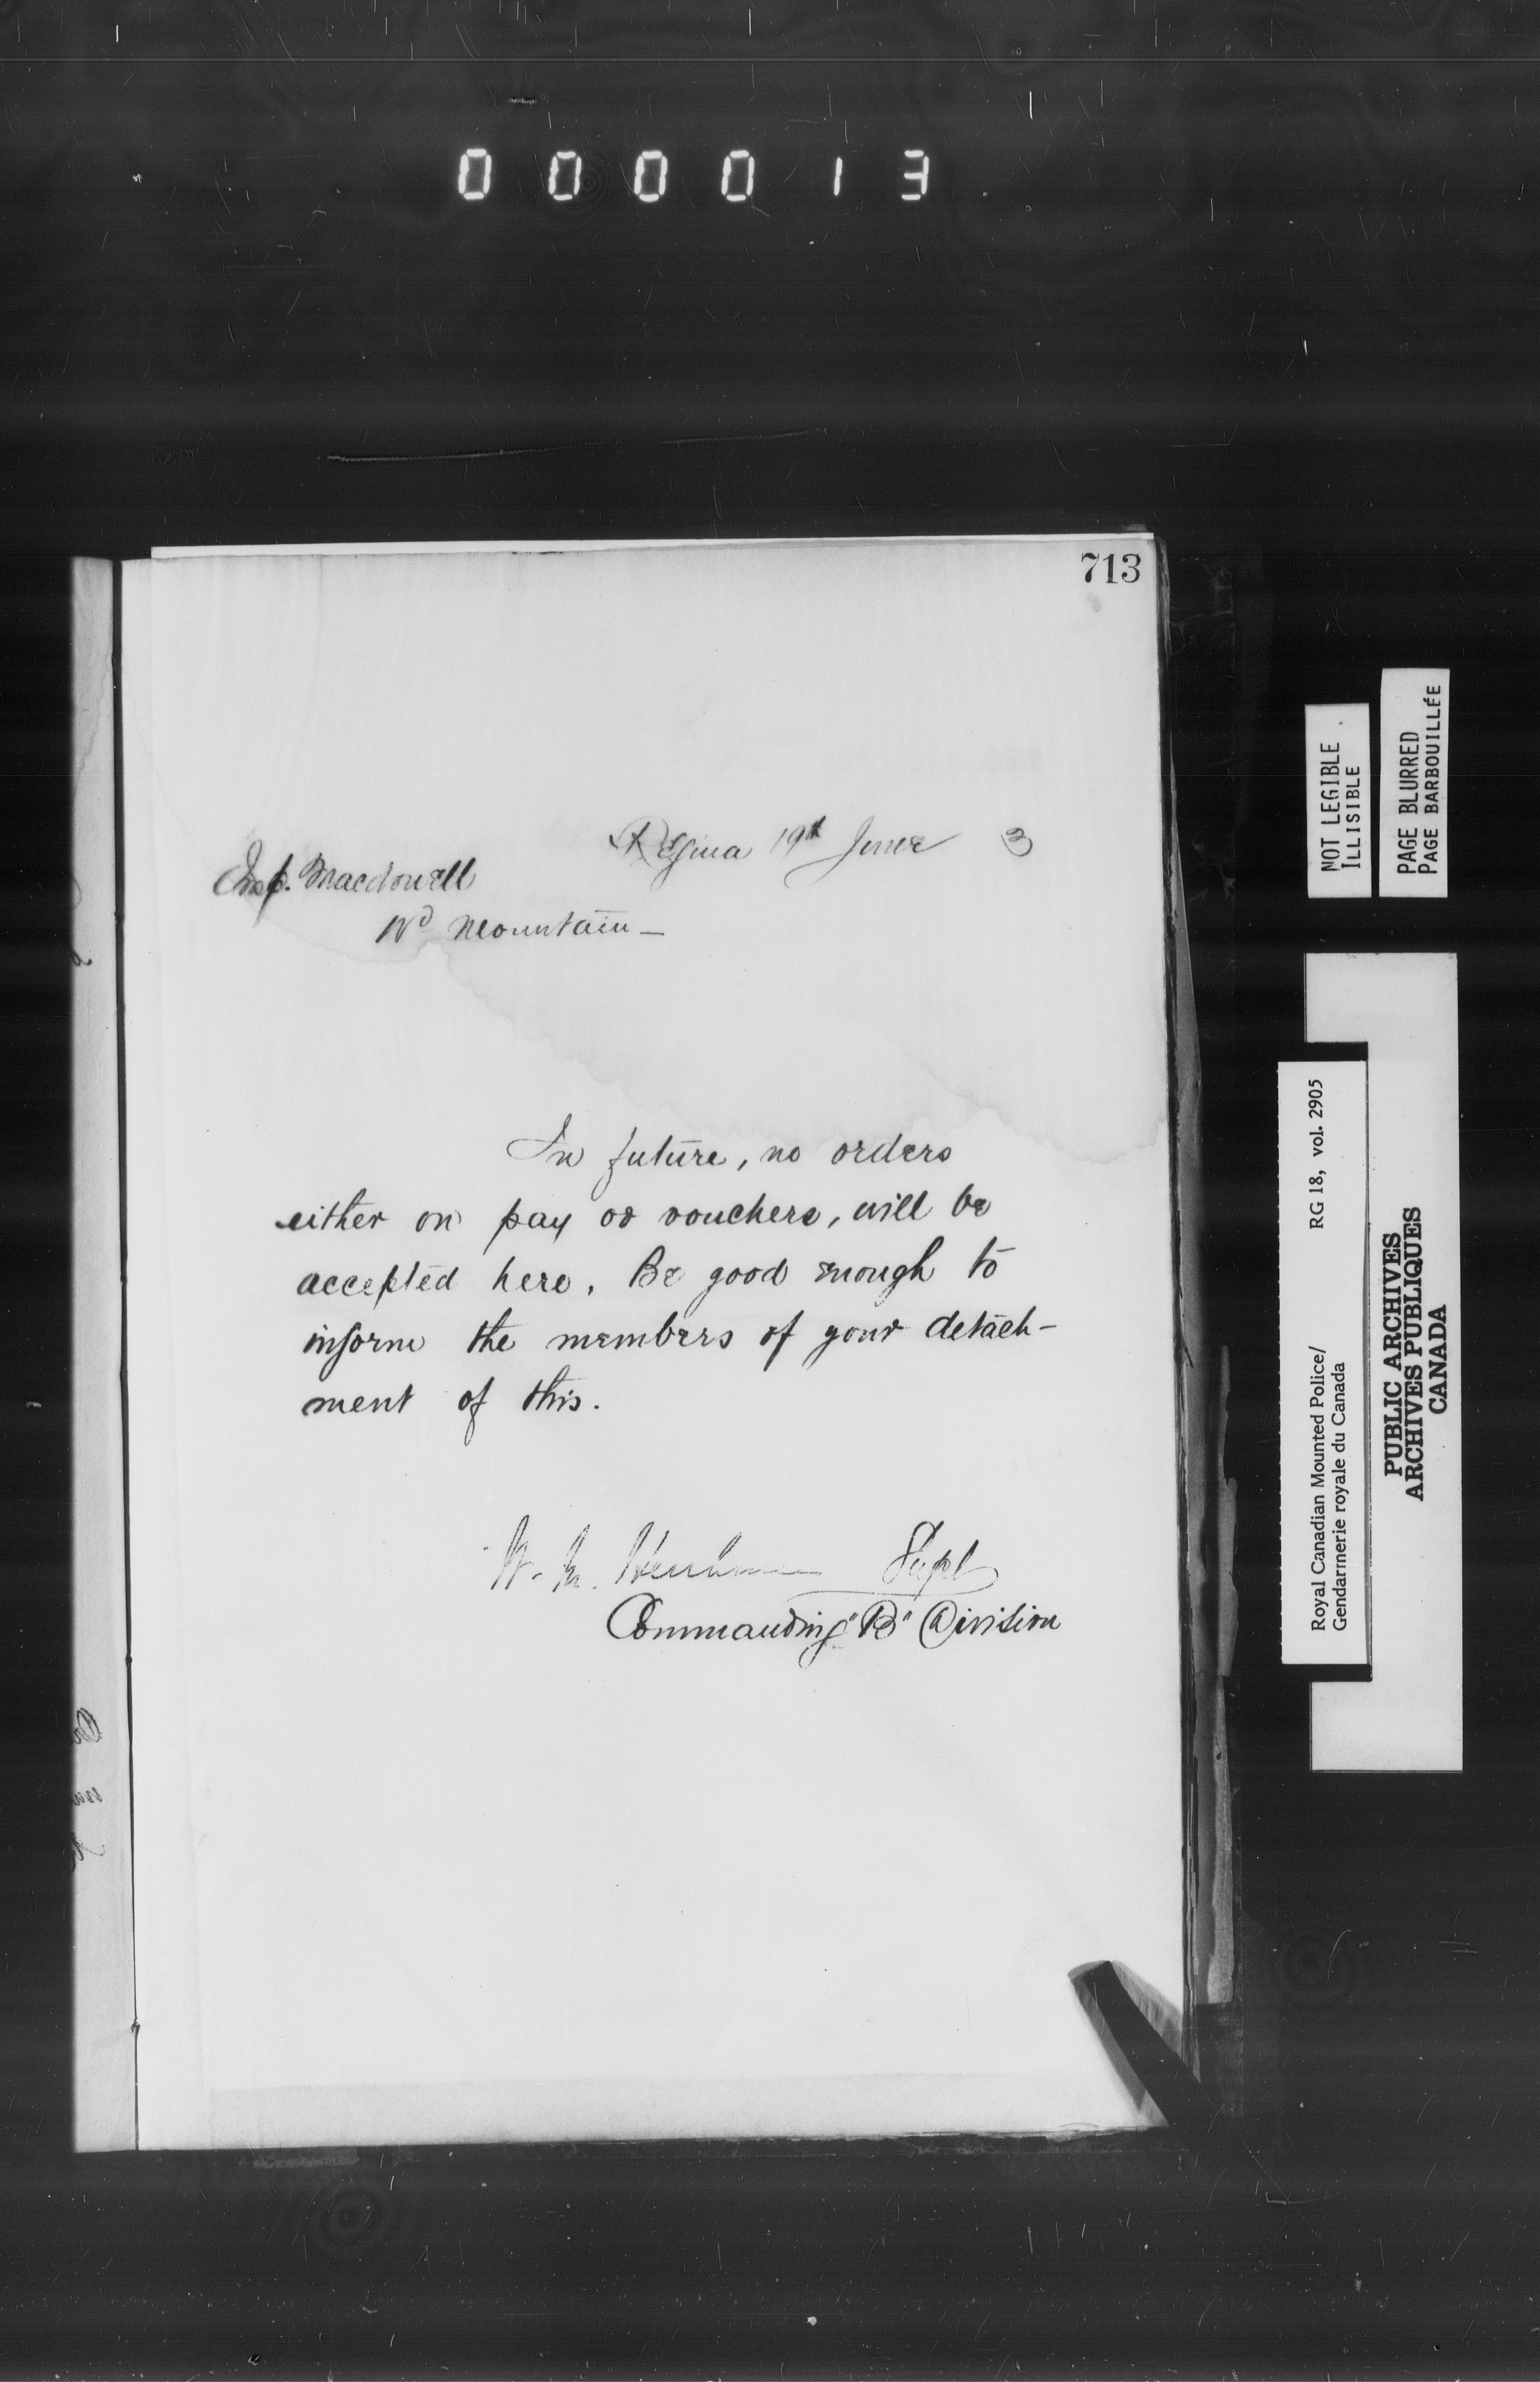 000013
713
Regina 19th June 3
Insp. Macdonell
Wd Mountain —
In future, no orders
either on pay or vouchers, will be
accepted here. Be good enough to
inform the members of your detach-
ment of this.
W. M. Herchmer Supt
Commanding "B" Division
NOT LEGIBLE
ILLISIBLE
PAGE BLURRED
PAGE BARBOUILLÉE
Royal Canadian Mounted Police/ RG 18, vol. 2905
Gendarmerie royale du Canada
PUBLIC ARCHIVES
ARCHIVES PUBLIQUES
CANADA